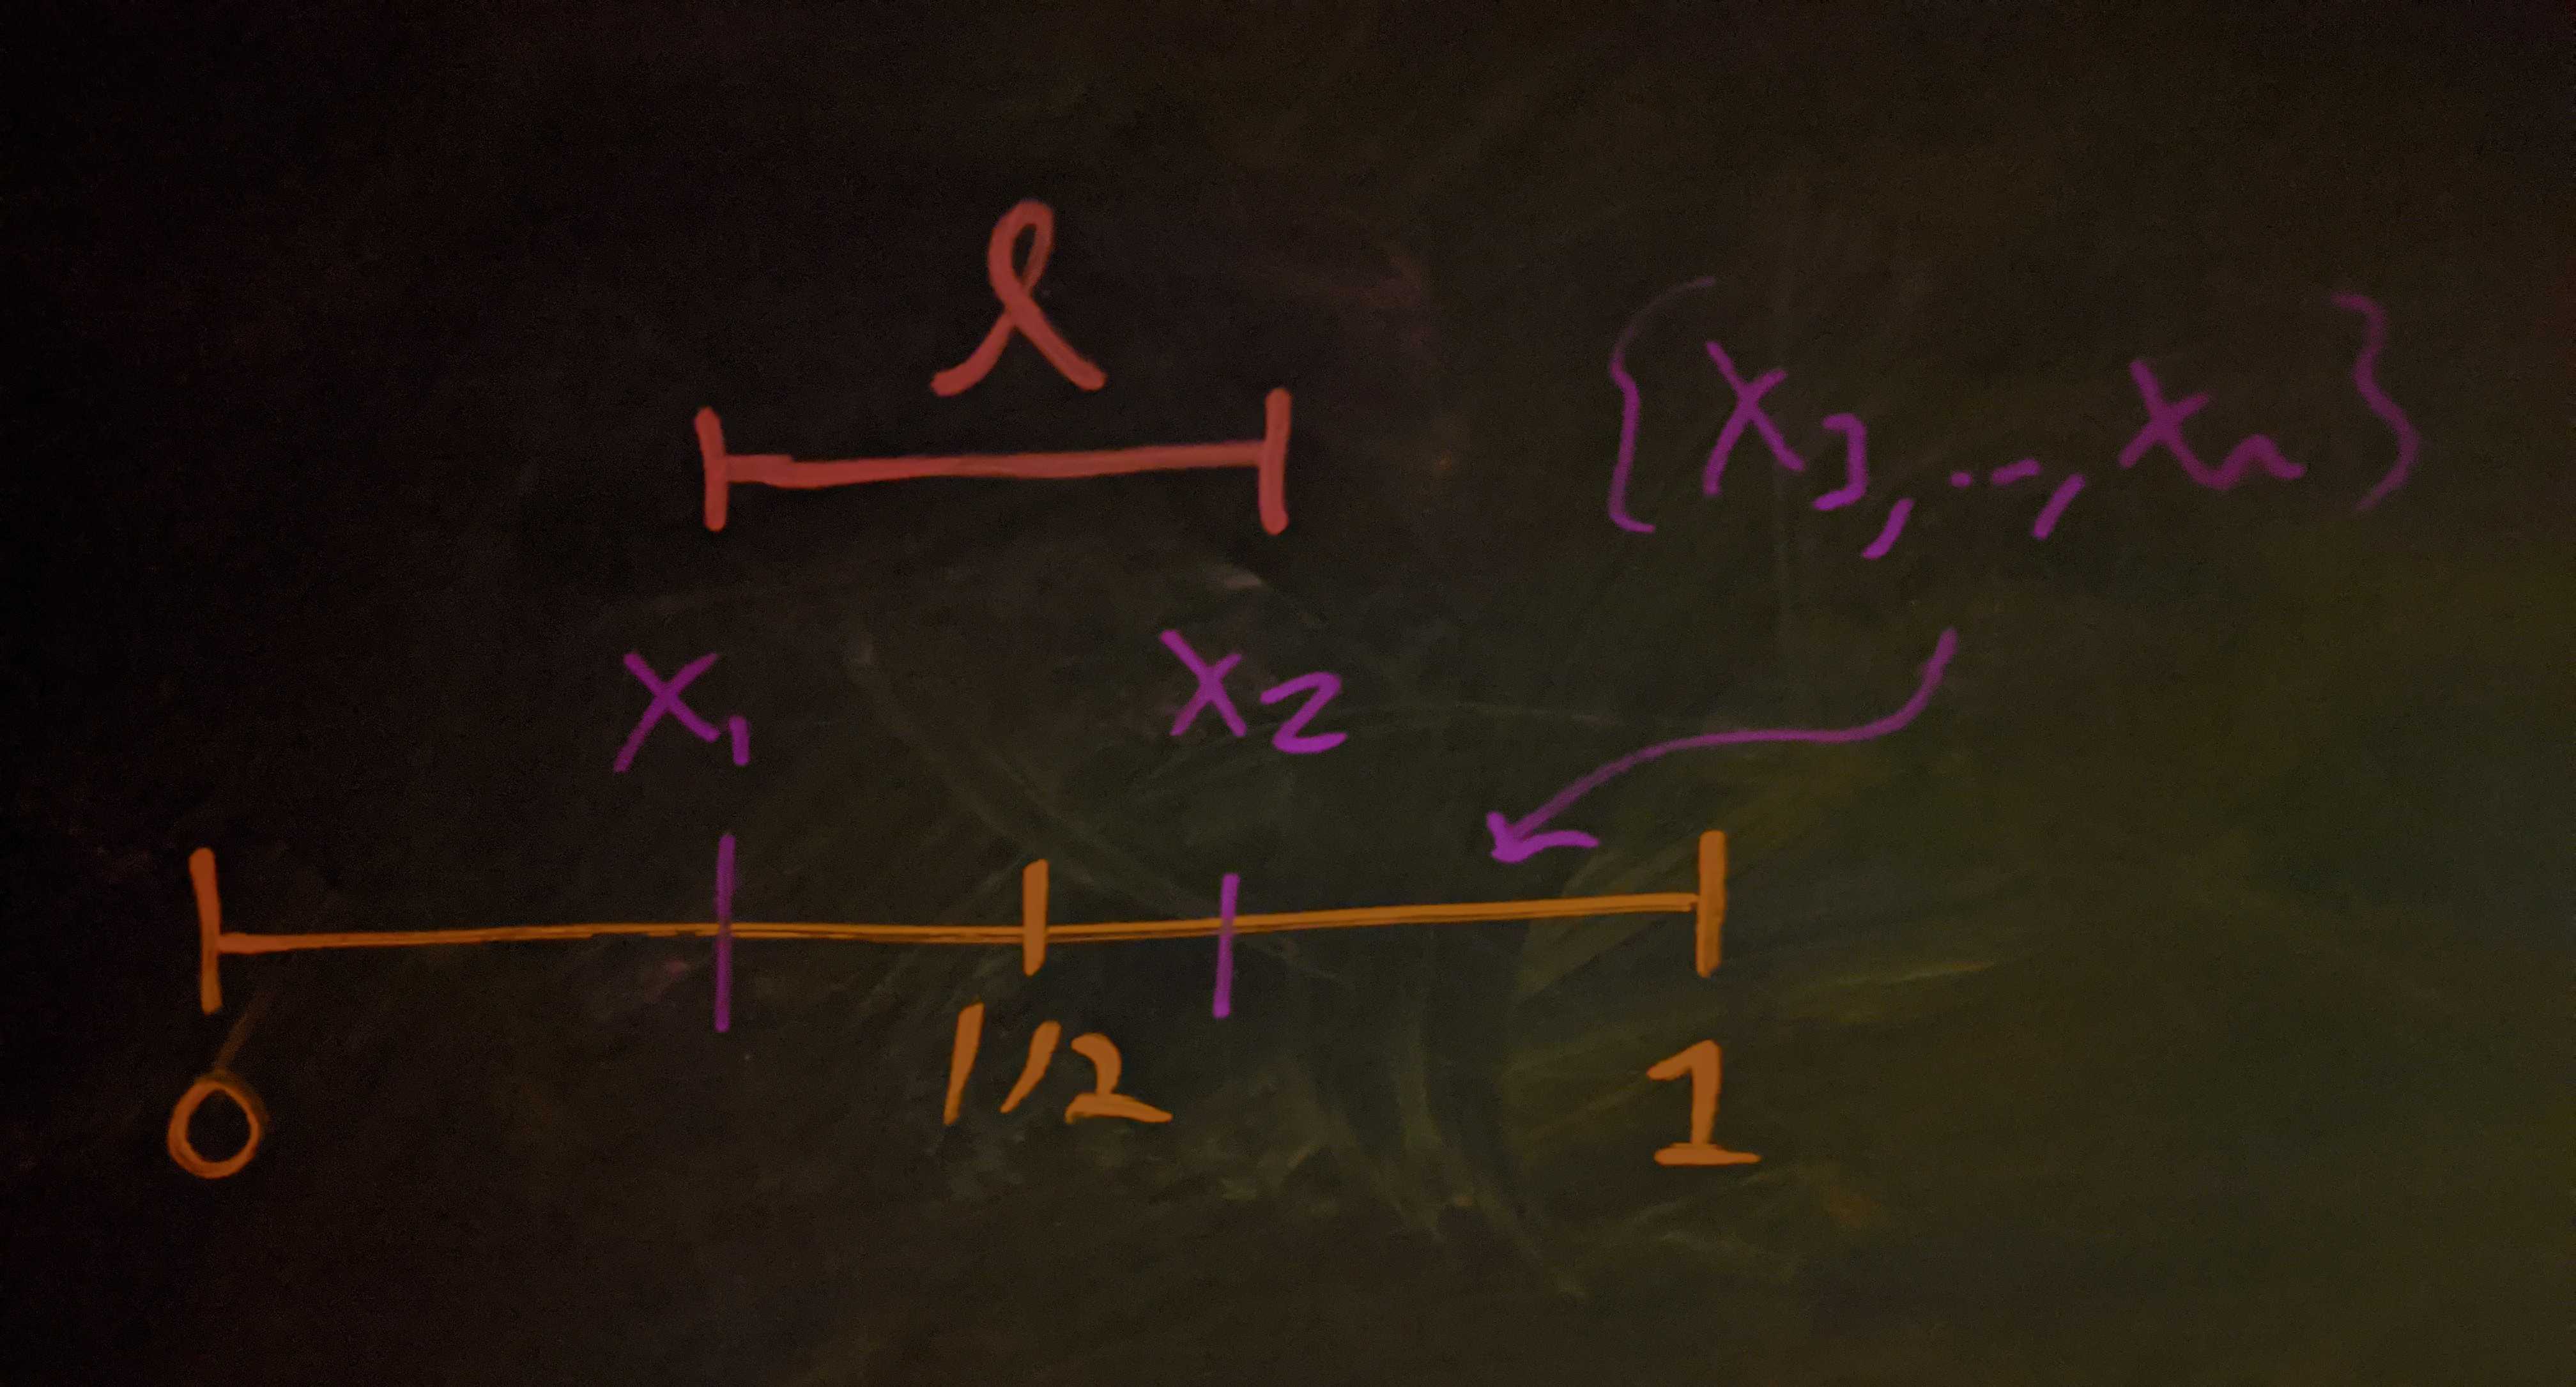 ℓ
{x₃, ..., xₙ}
x₁ x₂
0 1/2 1